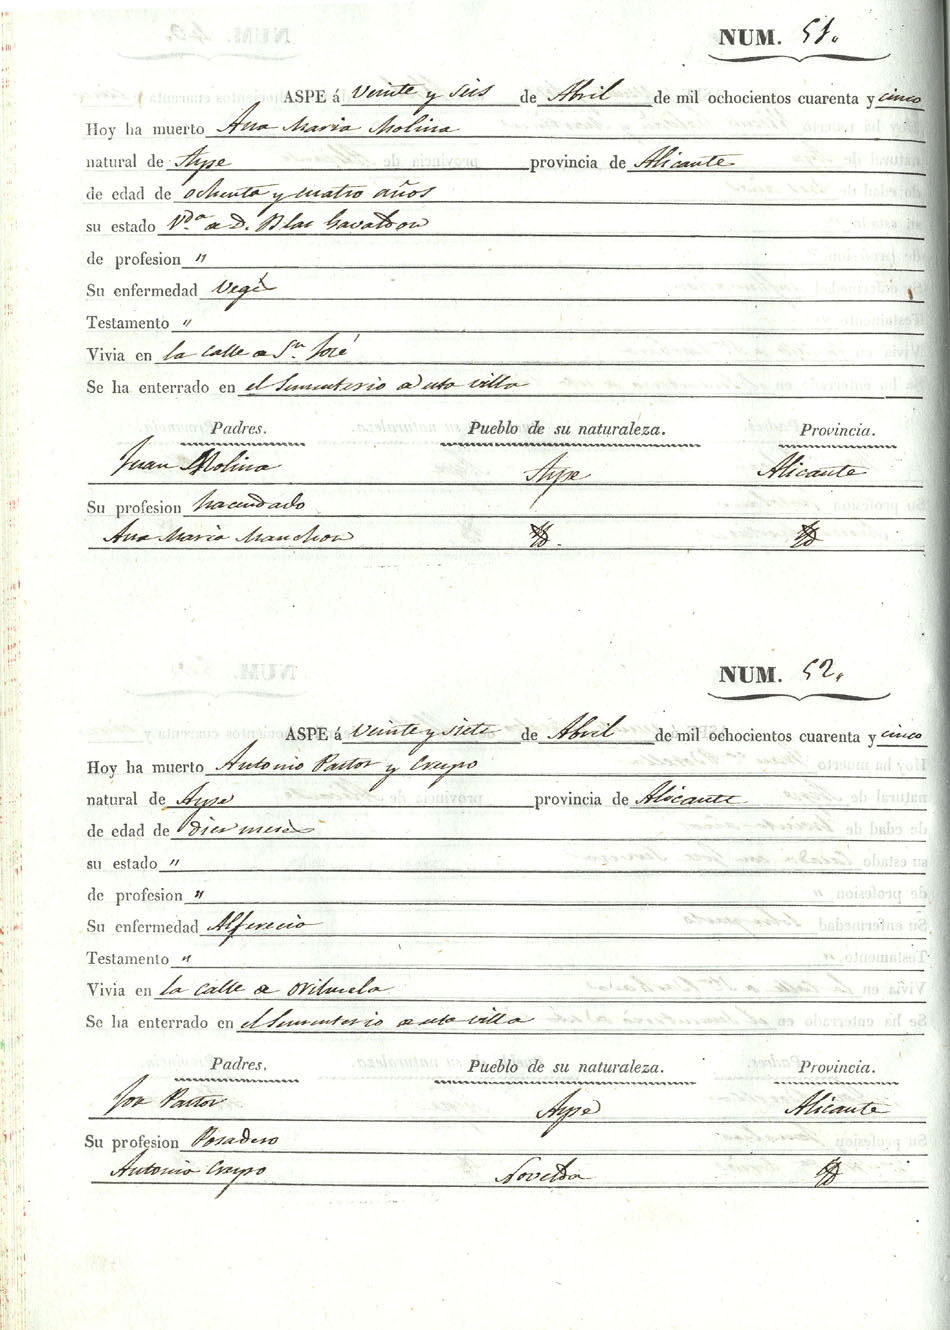 NUM. 51.
ASPE á Veinte y seis de Abril de mil ochocientos cuarenta y cinco
Hoy ha muerto Ana Maria Molina
natural de Aspe provincia de Alicante
de edad de ochenta y cuatro años
su estado Vda. de D. Blas Gavaldon
de profesion "
Su enfermedad Vegéz
Testamento "
Vivia en la calle de Sn. José
Se ha enterrado en el Sementerio de esta villa
Padres. Pueblo de su naturaleza. Provincia.
Juan Molina Aspe Alicante
Su profesion hacendado
Ana Maria Manchon
NUM. 52.
ASPE á Veinte y siete de Abril de mil ochocientos cuarenta y cinco
Hoy ha muerto Antonio Pastor y Crespo
natural de Aspe provincia de Alicante
de edad de diez meses
su estado "
de profesion "
Su enfermedad Alferecia
Testamento "
Vivia en la calle de Orihuela
Se ha enterrado en el Sementerio de esta villa
Padres. Pueblo de su naturaleza. Provincia.
Pastor Aspe Alicante
Su profesion Posadero
Antonia Crespo Novelda